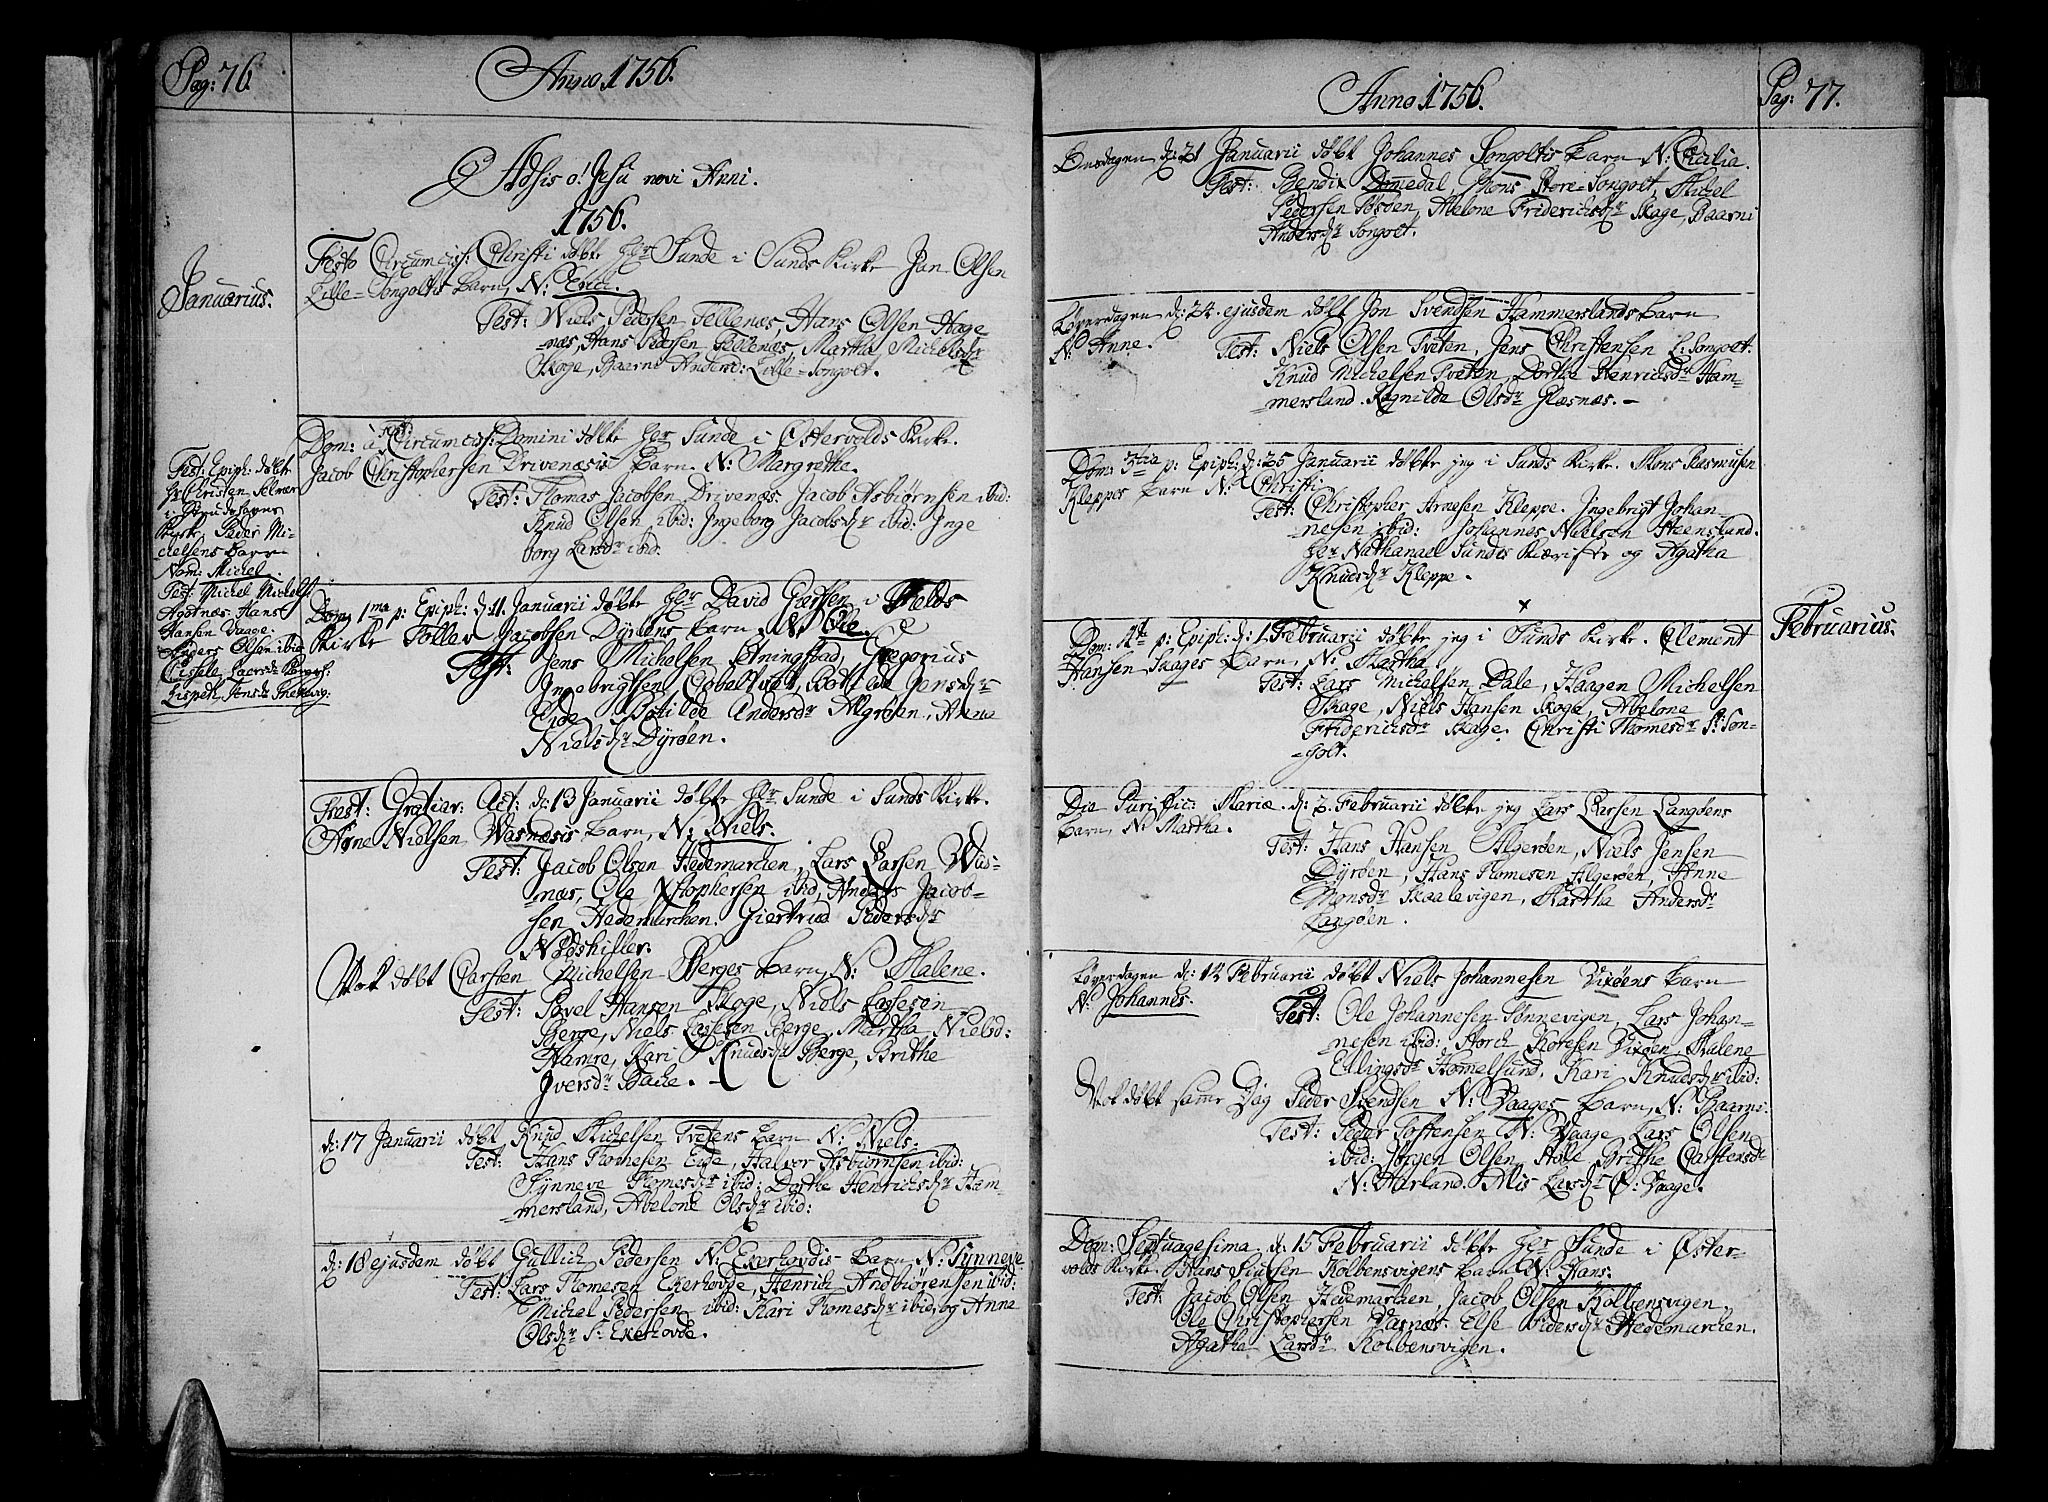 Pag: 76.
Anno 1756.
Adsis o! Jesu novi Anni.
1756.
Januarius.
Festo Circumcis: Christi döbte Hr Sunde i Sunds Kirke Jan Olsen
Lille-Songoltes barn, N: Erich.
Test: Niels Pedersen Tellenæs, Hans Olsen Hage
næs, Hans Pedersen Tellenæs, Martha Michelsdr
Skoge, Baarni Andersd: Lille-Songolt.
Dom: à post Circumcis: Domini döbte Hr Sunde i Østervolds Kirke.
Jacob Christophersen Drivenæsis Barn. N: Margrethe.
Test: Thomas Jacobsen Drivenæs. Jacob Asbiørnsen ibid:
Knud Olsen ibid: Ingeborg Jacobsdr ibid: Inge
borg Larsdr ibid.
Fest: Epiph: döbte
Hr Christen
i
Kirke Peder Mi-
chelsens barn
Nom: Michel.
Test: Michel Michels:
Agotnæs, Hans
Hansen Vaage,
Anders Olsen ibid
Dom, 1ma p: Epiph: d: 11. Januarii döbte Hr David Giertsen i Fields
Kirke Tollev Jacobsen Dyröens barn, N: Ole.
Test: Jens Michelsen Örningstad, Gregorius
Ingebrigtsen, Cobeltvet, Botilde Jensdr
Eide, Botilde Andersdr Algröen, Anne
Nielsdr Dyröen.
Fest: Gratiar: Act: d: 13 Januarii döbte Hr Sunde i Sunds Kirke.
Arne Nielsen Wasnæsis barn, N: Niels.
Test: Jacob Olsen Hedemarchen, Lars Larsen Was-
næs, Ole Xstophersen ibid, Anders Jacob-
sen Hedemarchen. Giertrud Pedersdr
Nödskiffter.
Nok döbt Carsten Michelsen Berges barn, N: Malene.
Test: Povel Hansen Skoge, Niels Lassesön
Berge, Niels Lassesen Berge, Martha Nielsd:
Hamre, Kari Knudsdr Berge, Brithe
Iversdr Bache.
d: 17 Januarii döbt Knud Michelsen Tvetens barn N: Niels.
Test: Hans Thomesen Eide, Halvor Asbiørnsen ibid:
Synneve Thomesdr ibid: Dorthe Henrichsdr Ham-
mersland, Abelone Olsdr ibid:
d: 18 ejusdem döbt Gullich Pedersen N: Ekerhovdis barn, N: Synneve
Test: Lars Thomesen Ekerhovde, Henrich Andbiörensen ibid:
Michel Pedersen ibid: Kari Thomesdr ibid, og Anne
Olsdr S: Ekerhovde.
Anno 1756.
Pag: 77.
Onsdagen d: 21 Januarii döbt Johannes Songoltis barn N: Cecilia.
Test: Bendix Dommedal, Mons Store-Songolt, Michel
Pedersen Pölsöen, Abelone Friderichsdr Skage, Baarni
Andersdr Songolt.
Löverdagen d: 24. ejusdem döbt Jon Svendsen Hammerslands barn
N: Anne.
Test: Niels Olsen Tveten, Jens Christensen L: Songolt.
Knud Michelsen Tveten, Dorthe Henrichsdr Ham-
mersland. Ragnilda Olsdr Glæsnæs.
Dom: 3tia p: Epiph: d: 25 Januarii döbte jeg i Sunds Kirke. Mons Rasmusen
Kleppes barn N: Christi
Test: Christopher Arnesen Kleppe. Ingebrigt Johan-
nesen ibid: Johannes Nielsen Steensland.
Hr Nathanael Sundes Kiæriste og Agatha
Knudsdr Kleppe.
Februarius.
Dom: 4ta p: Epiph: d: 1. Februarii döbte jeg i Sunds Kirke. Clement
Hansen Skages barn, N: Martha
Test: Lars Michelsen Dale, Haagen Michelsen
Skage, Niels Hansen Skoge, Abelone
Friderichsdr Skage. Christi Thomesdr St: Son-
golt.
Die Purific: Mariæ. d: 2. Februarii döbte jeg Lars Larsen Langöens
barn, N: Martha.
Test: Hans Hansen Algeröen, Niels Jensen
Dyröen, Hans Thomesen Algeröen, Anne
Monsdr Skaalevigen, Martha Andersdr
Langöen.
Löverdagen d: 14 Februarii döbt Niels Johannesen Vixöens barn
N: Johannes.
Test: Ole Johannesen Tønnevigen, Lars Johan-
nesen ibid: Storch Koresen Vixöen, Malene
Ellingsdr Hommelsund, Kari Knudsdr ibid:
Nok döbt samme Dag Peder Svendsen N: Vaages barn, N: Baarni.
Test: Peder Tostensen N: Vaage, Lars Olsen
ibid: Jørgen Olsen, Holle Brithe Carstensdr
N: Harland. Alis Larsdr Ø: Vaage.
Dom: Septuagesima d: 15 Februarii döbte Hr Sunde i Øster-
volds Kirke. Hans Siulsen Kolbensvigens barn N: Hans.
Test: Jacob Olsen Hedemarchen, Jacob Olsen Kolbensvigen,
Ole Christophersen Vasnæs. Else Pedersdr Hedemarchen.
Agatha Larsdr Kolbensvigen.